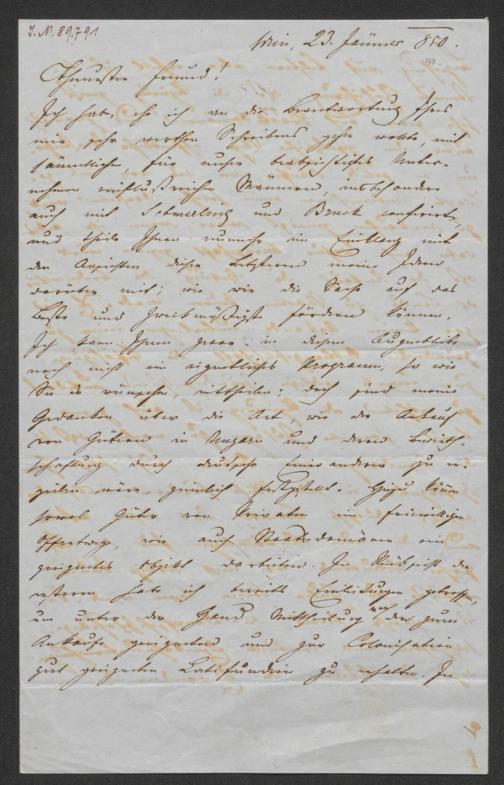 J.N. 89.791
Wien, 23. Jänner 850.
Theuerster Freund!
Ich habe, ehe ich an die Beantwortung Ihres
mir sehr werthen Schreibens gehe wollte, mit
sämmtliche, für unser beabsichtigtes Unter-
nehmen einflußreiche Männern, insbesondere
auch mit Schmerling und Bruck conferirt,
und theile Ihnen nunmehr im Einklang mit
den Ansichten dieser Letzteren meine Ideen
darüber mit; wie wir die Sache auf das
Beste und Zweckmäßigste fördern können.
Ich kann Ihnen zwar in diesem Augenblick
noch nicht ein eigentliches Programm, so wie
Sie es wünschen, mittheilen; doch sind meine
Gedanken über die Art, wie der Ankauf
von Gütern in Ungarn und deren Bewirth-
schaftung durch deutsche Einwanderer zu er-
zielen wäre, ziemlich festgestellt. Hiezu
sowol Güter von Privaten im freiwilligen
Offertwege, wie auch Staatsdomänen ein
geeignetes Objekt darbieten. In Rücksicht der
ersteren habe ich bereits Einleitungen getroffen,
um unter der Hand Mittheilung von den zum
Ankaufe geeigneten und zur Colonisation
gut geeigneten Latifundien zu erhalten. In